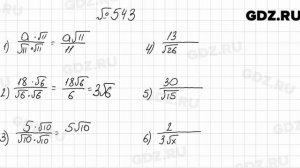 GDZ.RU
№543
1) \frac{a \cdot \sqrt{11}}{\sqrt{11} \cdot \sqrt{11}} = \frac{a\sqrt{11}}{11}
2) \frac{18 \cdot \sqrt{6}}{\sqrt{6} \cdot \sqrt{6}} = \frac{18\sqrt{6}}{6} = 3\sqrt{6}
3) \frac{5 \cdot \sqrt{10}}{\sqrt{10} \cdot \sqrt{10}} = \frac{5\sqrt{10}}{}
4) \frac{13}{\sqrt{26}}
5) \frac{30}{\sqrt{15}}
6) \frac{2}{3\sqrt{x}}
GDZ.RU